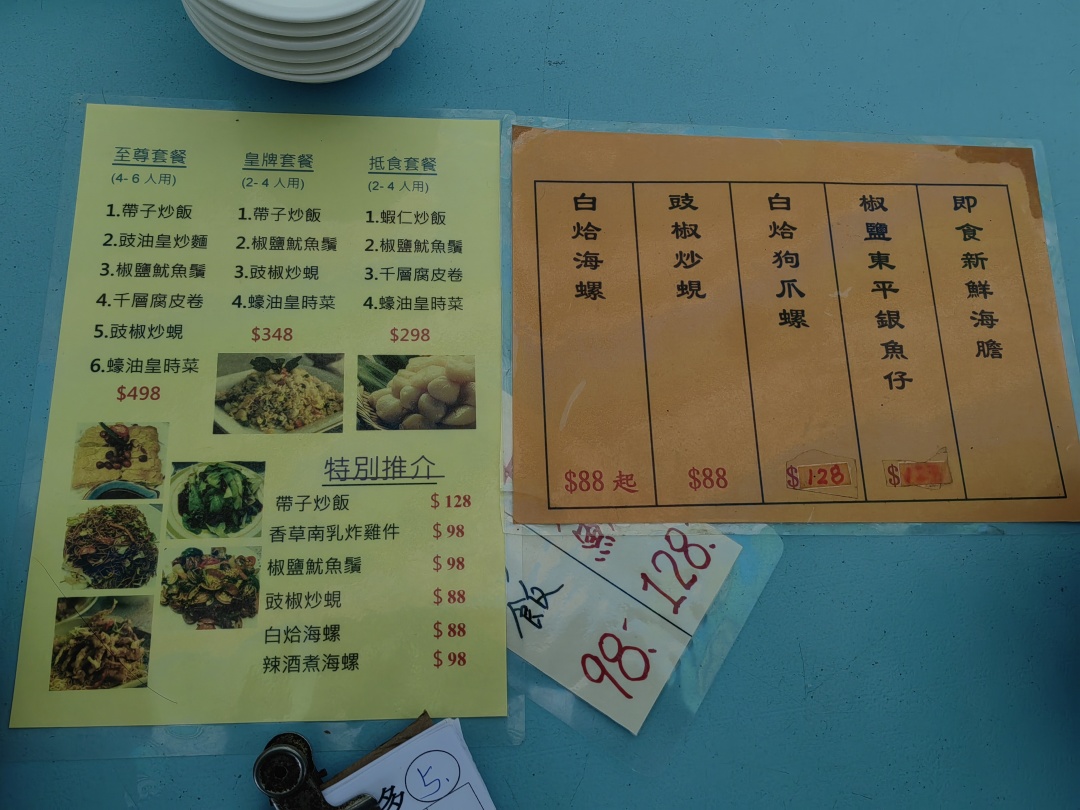 至尊套餐
(4-6 人用)
1.帶子炒飯
2.豉油皇炒麵
3.椒鹽魷魚鬚
4.千層腐皮卷
5.豉椒炒蜆
6.蠔油皇時菜
$498
皇牌套餐
(2-4 人用)
1.帶子炒飯
2.椒鹽魷魚鬚
3.豉椒炒蜆
4.蠔油皇時菜
$348
抵食套餐
(2-4 人用)
1.蝦仁炒飯
2.椒鹽魷魚鬚
3.千層腐皮卷
4.蠔油皇時菜
$298
特別推介
帶子炒飯 $128
香草南乳炸雞件 $98
椒鹽魷魚鬚 $98
豉椒炒蜆 $88
白烚海螺 $88
辣酒煮海螺 $98
白烚海螺
$88 起
豉椒炒蜆
$88
白烚狗爪螺
$128
椒鹽東平銀魚仔
$
即食新鮮海膽
128.
飯
98.
5.